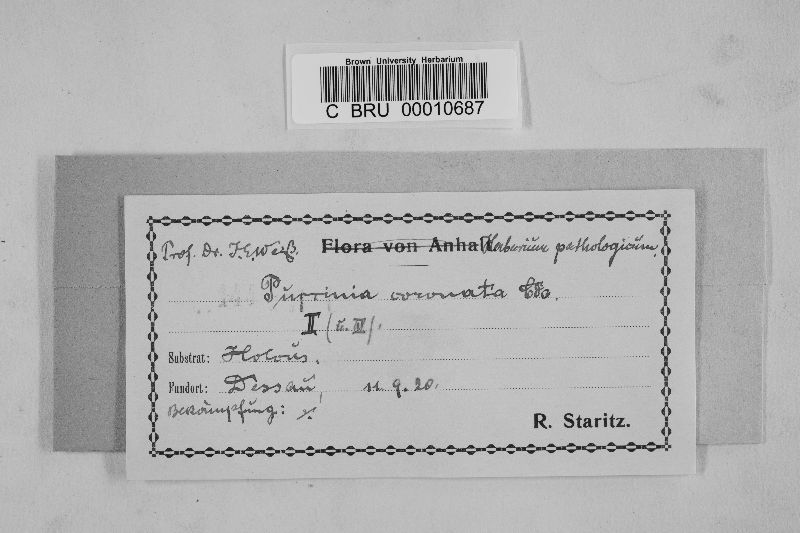 Brown University Herbarium
C BRU 00010687
Prof. Dr. J.E. Weiß. Flora von Anhalt Herbarium pathologicum.
Puccinia coronata Cda.
II (u. III).
Substrat: Holcus.
Fundort: Dessau, 11. 9. 20.
Bekämpfung:
R. Staritz.